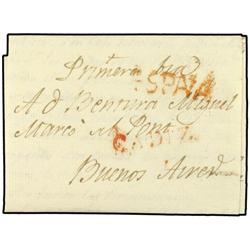 Primera
ESPAÑA
A d Bentura Miguel
Marcó del Pont
CADIZ
Buenos Aires